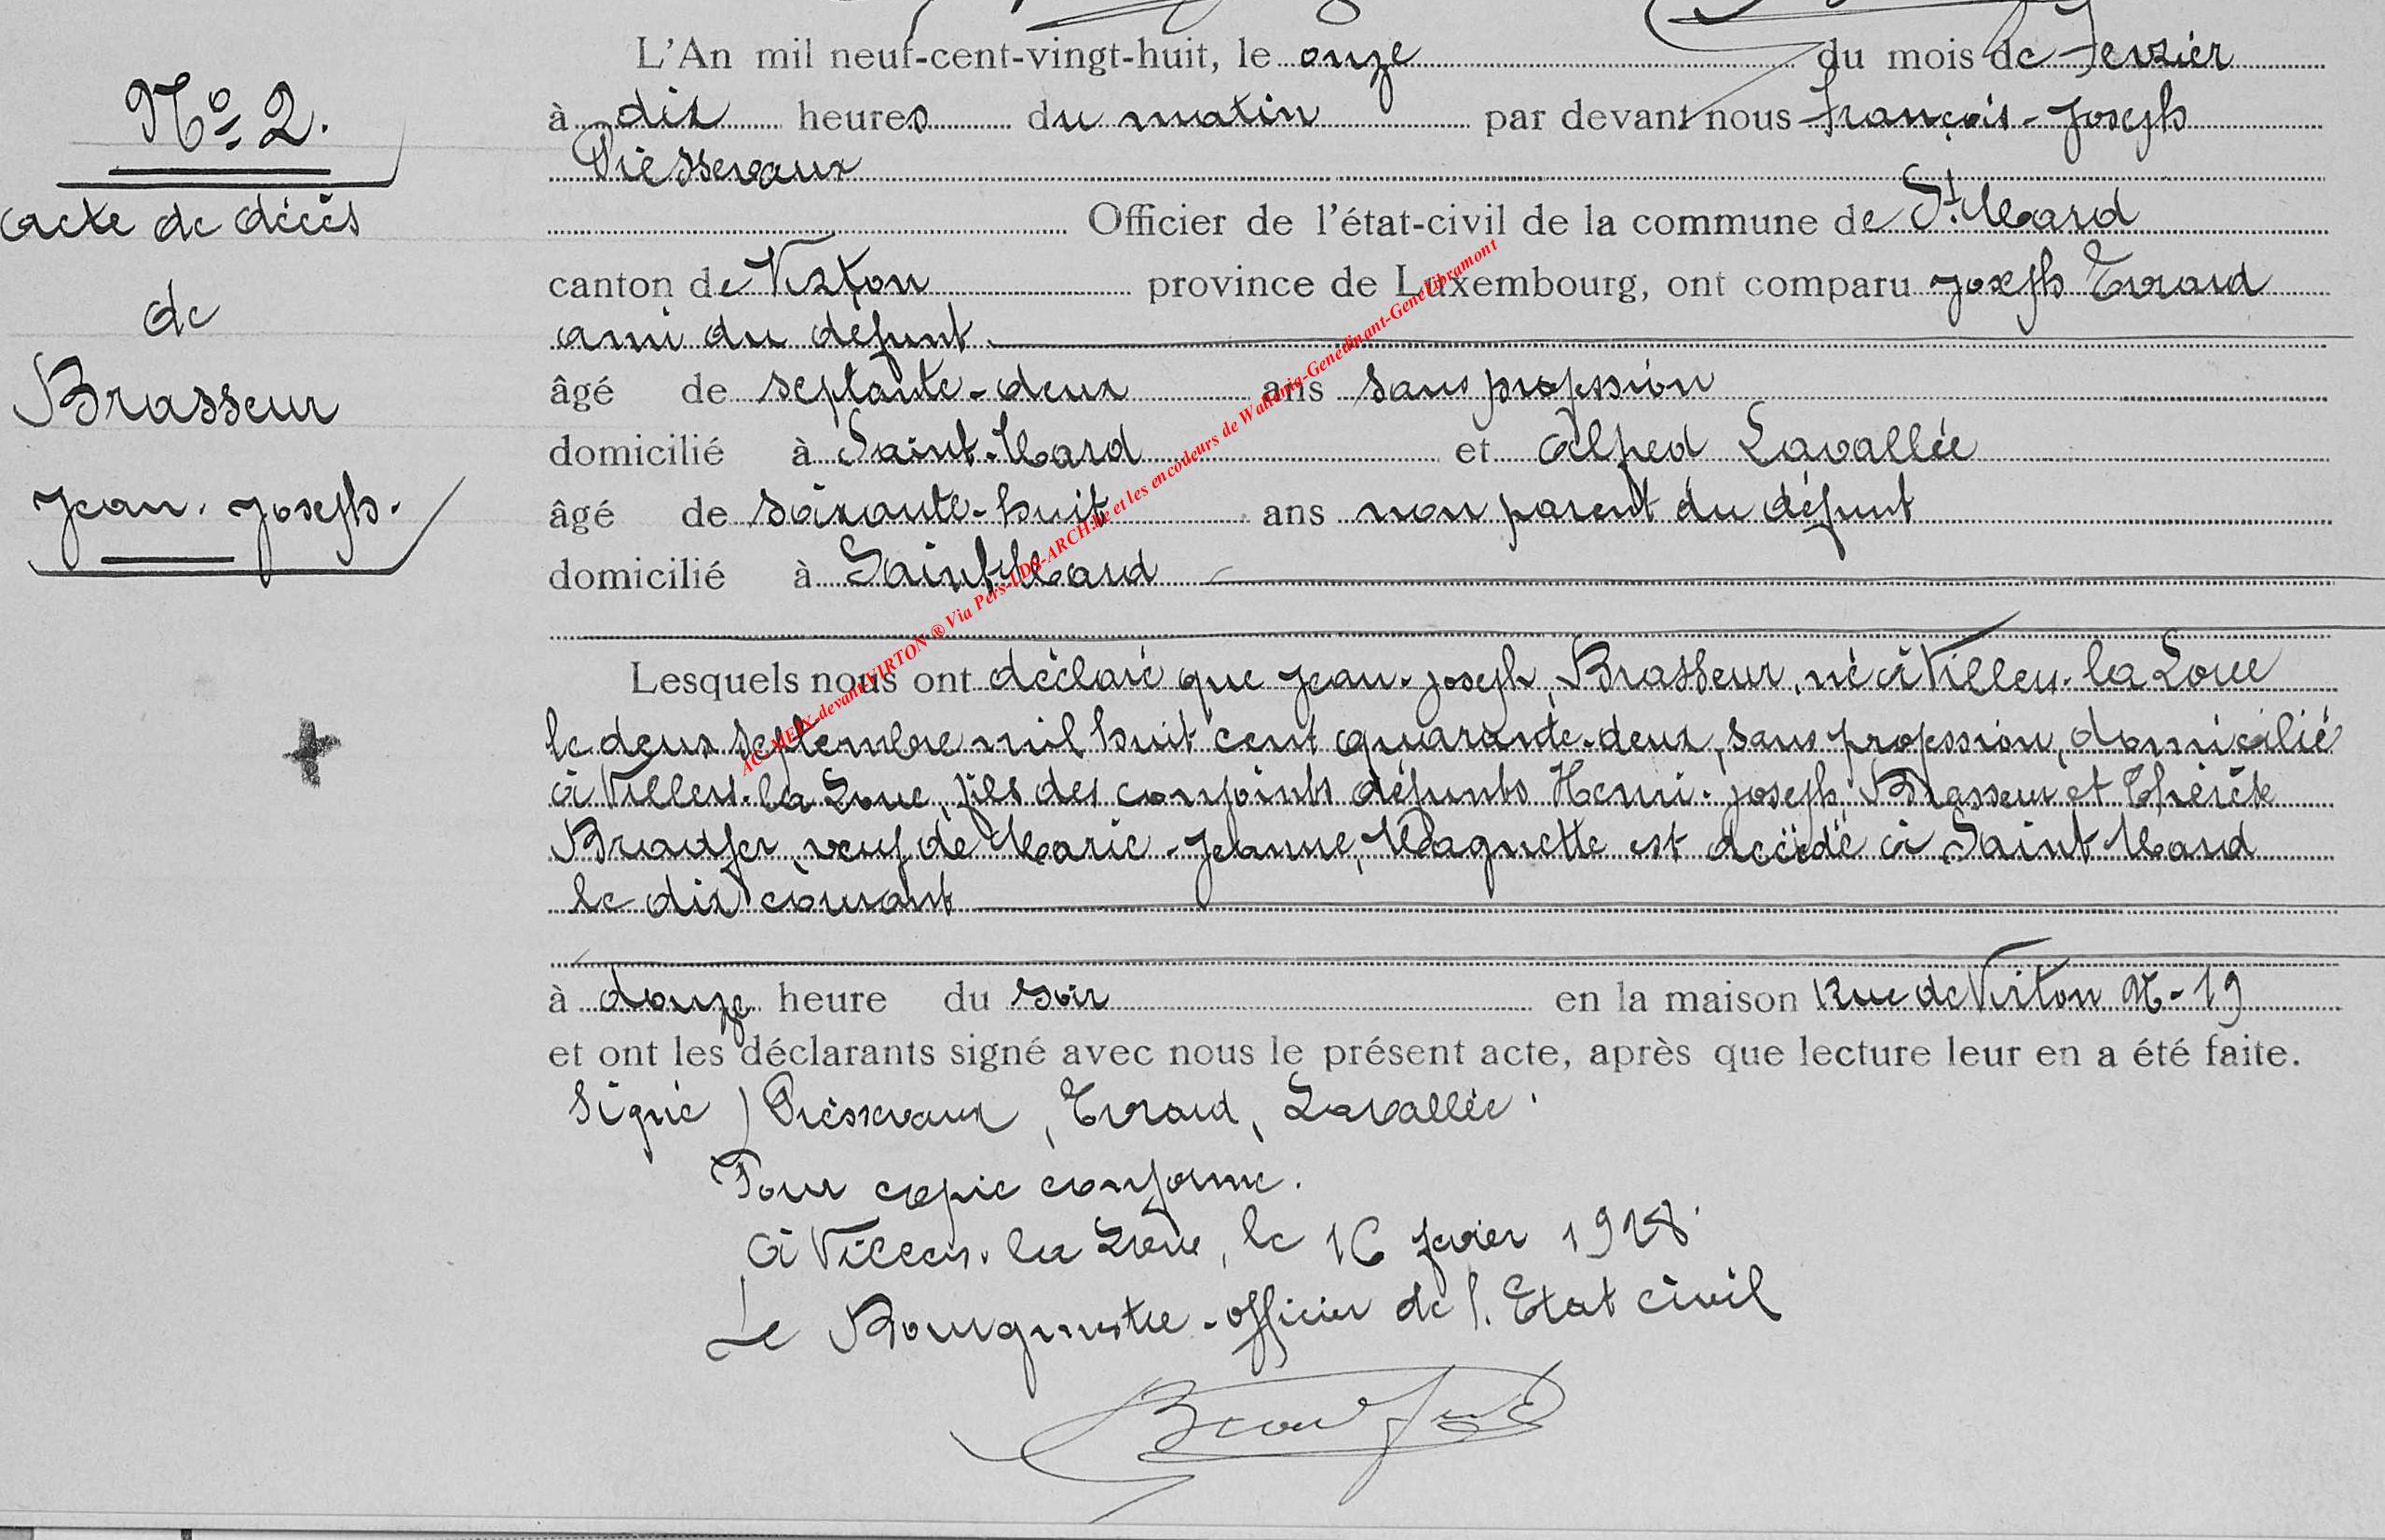 N° 2.
acte de décès
de
Brasseur
Jean-Joseph.
L'An mil neuf-cent-vingt-huit, le onze du mois de Fevrier
à dix heures du matin par devant nous François-Joseph
Piessevaux
Officier de l'état-civil de la commune de St Mard
canton de Virton province de Luxembourg, ont comparu Joseph Evrard
ami du défunt.
âgé de septante-deux ans sans profession
domicilié à Saint-Mard et Alfred Lavallée
âgé de soixante-huit ans non parent du défunt
domicilié à Saint-Mard
Lesquels nous ont déclaré que Jean-Joseph, Brasseur, né à Villers-la Loue
le deux septembre mil huit cent quarante-deux, sans profession, domicilié
à Villers-la Loue, fils des conjoints défunts Henri-Joseph Brasseur et Thérèse
Braufer, veuf de Marie-Jeanne, Magnette est décédé à Saint Mard
le dix courant
à douze heure du soir en la maison Rue de Virton N-19
et ont les déclarants signé avec nous le présent acte, après que lecture leur en a été faite.
Signé) Piessevaux, Evrard, Lavallée.
Pour copie conforme.
à Villers-la Loue, le 16 fevrier 1928.
Le Bourgmestre-officier de l'Etat civil
AC-MEIX-devant-VIRTON ® Via Pers-LDS-ARCH.be et les encodeurs de Wallonia-Genedinant-Genelibramont